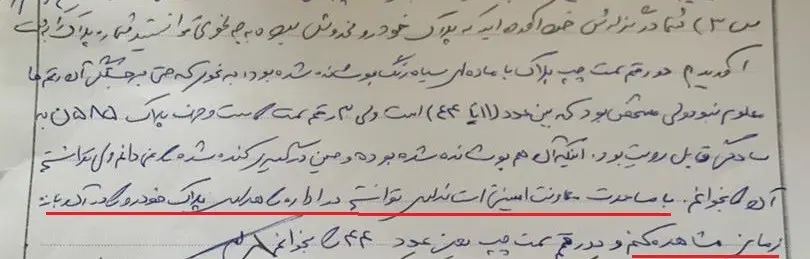 س ۳) شما در گزارش خود آورده اید که پلاک خودرو مخدوش بوده به چه نحوی توانستید شماره پلاک را بدست
آورید دو رقم سمت چپ پلاک با ماده ای سیاه رنگ پوشانده شده بود به طوری که حتی برجستگی آن رقم ها
معلوم نبود ولی مشخص بود که بین عدد (۱۱ یا ۴۴) است ولی ۳ رقم سمت راست و حرف پلاک ۵۸۵ ن به
سادگی قابل رویت بود. اینکه آن هم پوشانده شده بوده و حین درگیری کنده شده را نمی دانم ولی توانستم
آن را بخوانم. با مساعدت معاونت امنیتی استانداری توانستم در اداره راهداری پلاک خودرو را در آن بازه
زمانی مشاهده کنم و دو رقم سمت چپ یعنی عدد ۴۴ را بخوانم